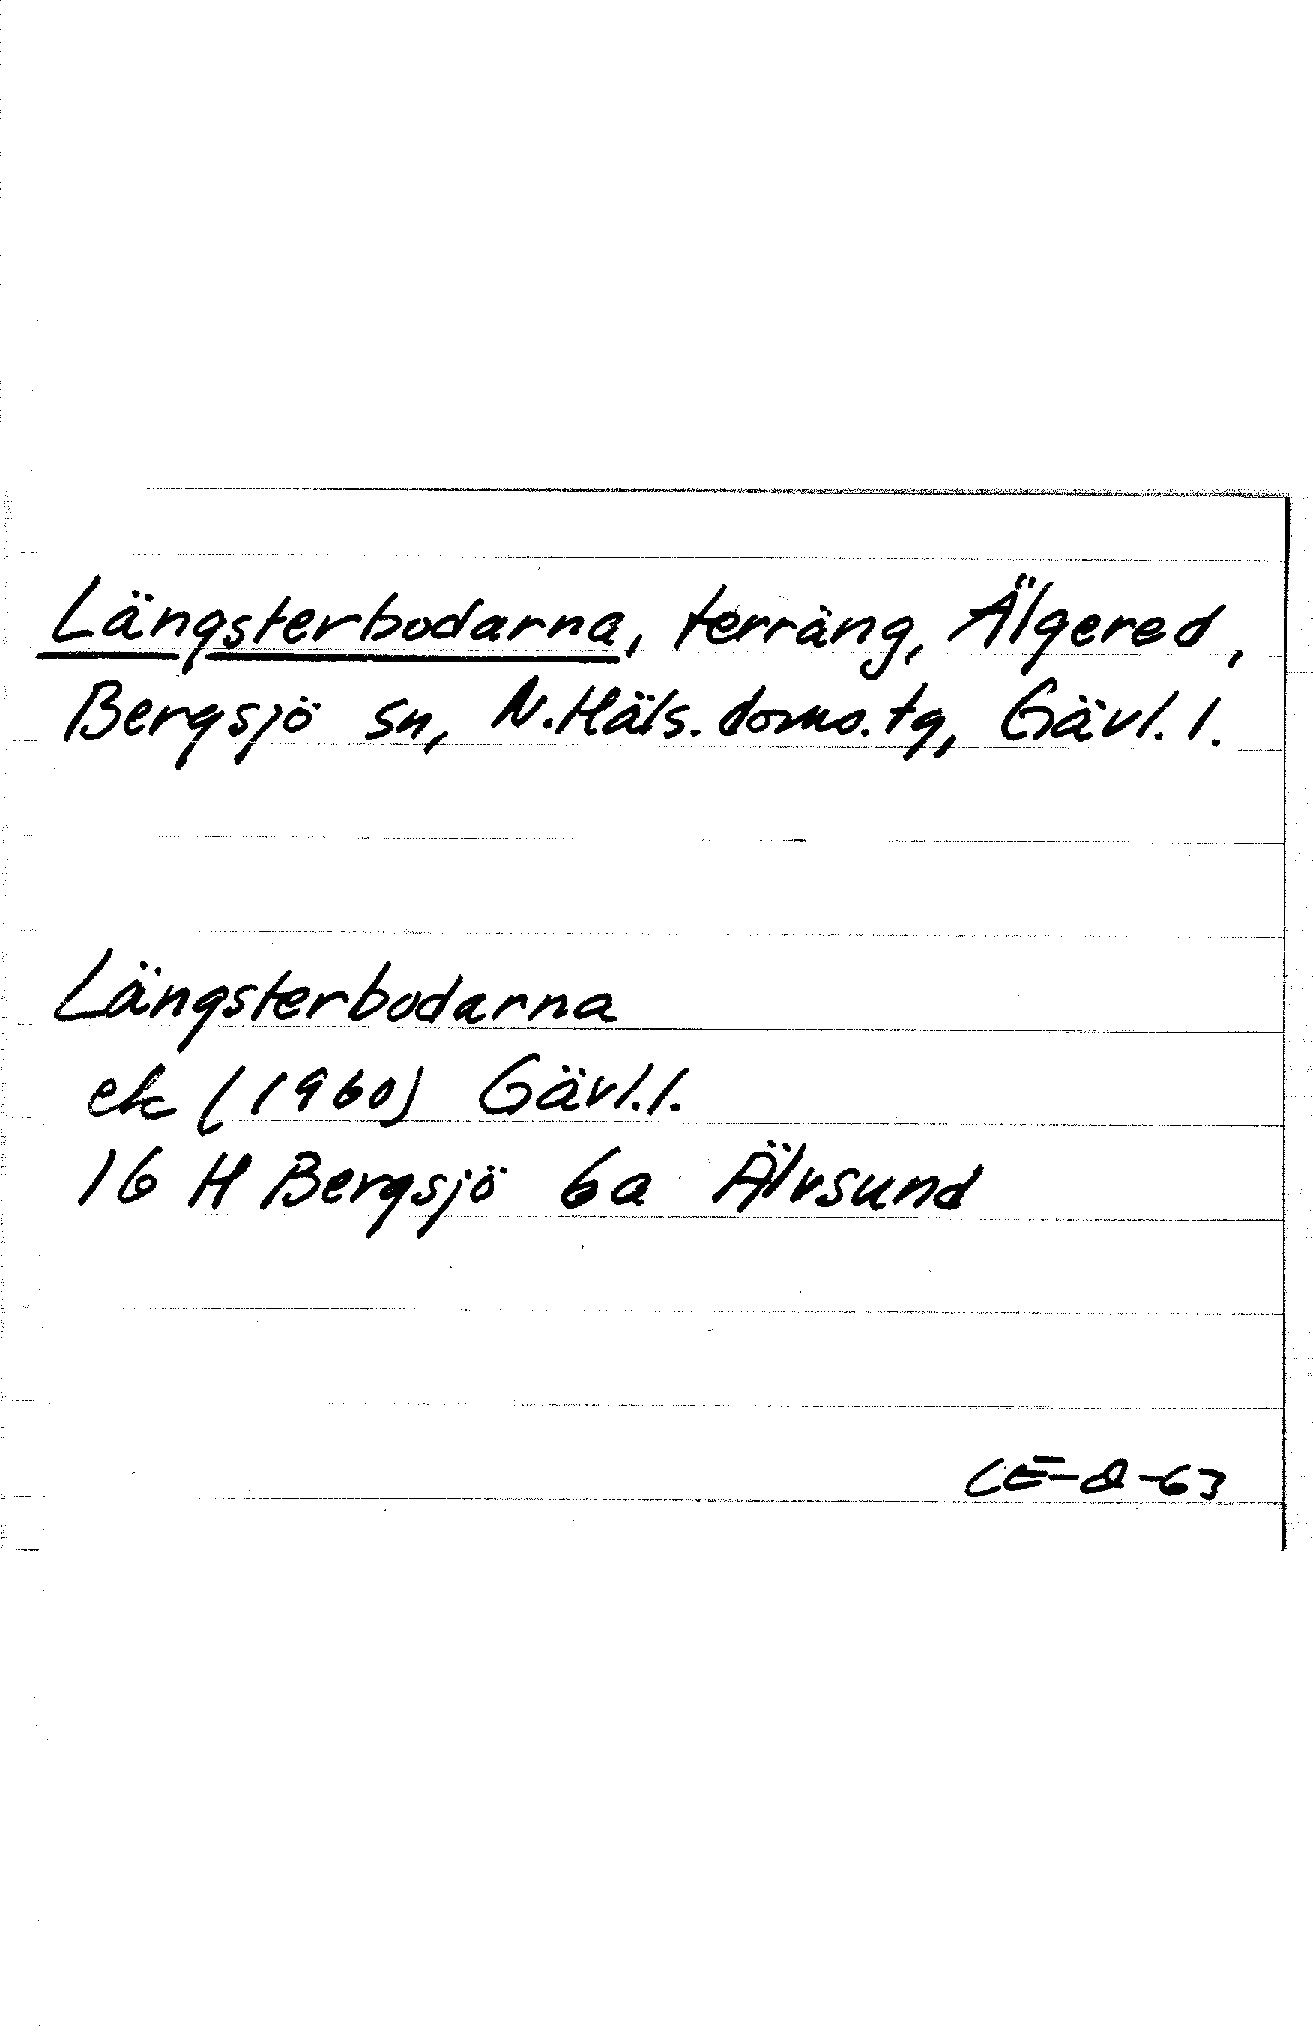 Längsterbodarna, terräng, Älgered,
Bergsjö sn, N.Häls. doms. tg, Gävl. l.
Längsterbodarna
ek (1960) Gävl.l.
16 H Bergsjö 6a Älvsund